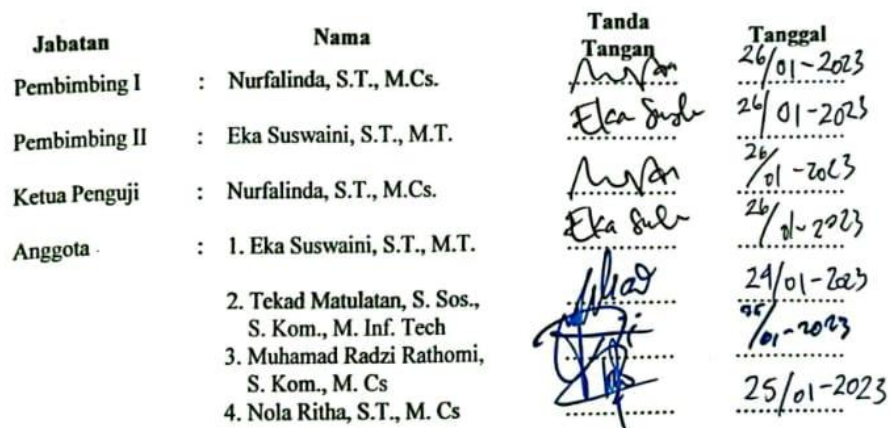 Jabatan Nama Tanda Tangan Tanggal
Pembimbing I : Nurfalinda, S.T., M.Cs. 26/01-2023
Pembimbing II : Eka Suswaini, S.T., M.T. Eka 26/01-2023
Ketua Penguji : Nurfalinda, S.T., M.Cs. 26/01-2023
Anggota : 1. Eka Suswaini, S.T., M.T. Eka 26/01-2023
2. Tekad Matulatan, S. Sos., 24/01-2023
S. Kom., M. Inf. Tech /01-2023
3. Muhamad Radzi Rathomi,
S. Kom., M. Cs 25/01-2023
4. Nola Ritha, S.T., M. Cs